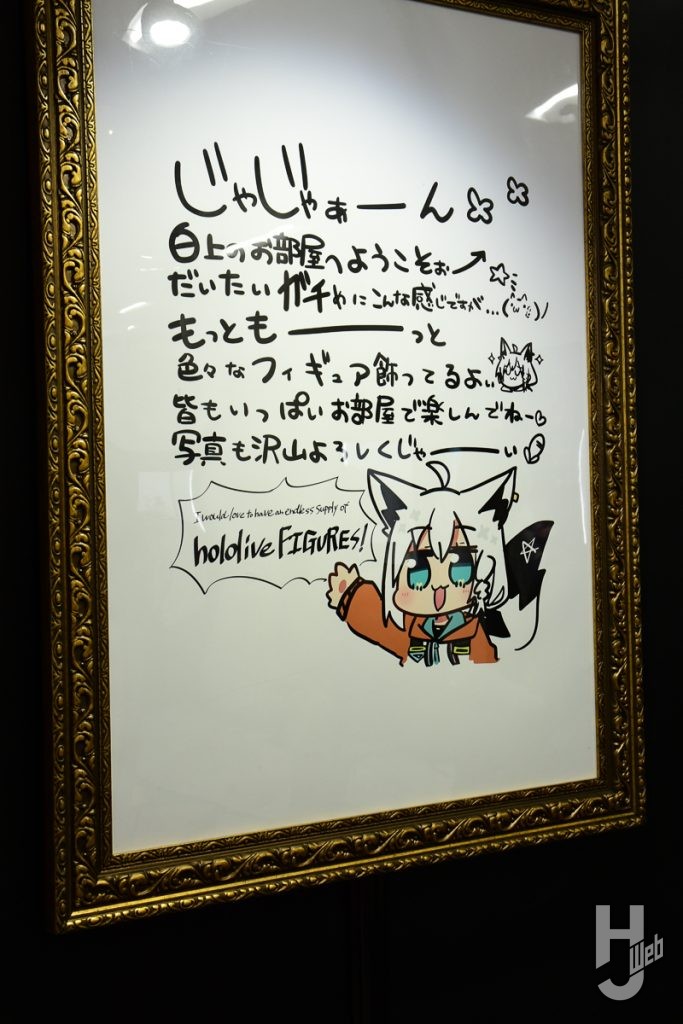 じゃじゃぁーん
白上のお部屋へようこそぉ↗
だいたいガチめにこんな感じですが…(´ω`)ノ
もっともーーーっと
色々なフィギュア飾ってるよぃ
皆もいっぱいお部屋で楽しんでねー♡
写真も沢山よろしくじゃーーぃ
I would love to have an endless supply of
hololive FIGURES!
HJ Web